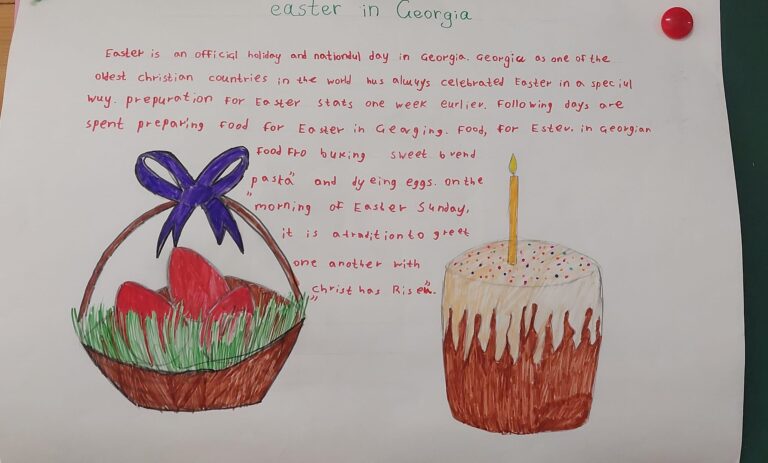 easter in Georgia
Easter is an official holiday and nationdul day in Georgia. Georgia as one of the
oldest christian countries in the world hus always celebrated Easter in a speciul
wuy. prepuration For Easter stats one week eurlier. Following days are
spent preparing food for Easter in Georging. Food, for Ester. in Georgian
Food Fro buking sweet brend
„pasta” and dyeing eggs. on the
morning of Easter Sunday,
it is a tradition to greet
one another with
„Christ has Risen”.